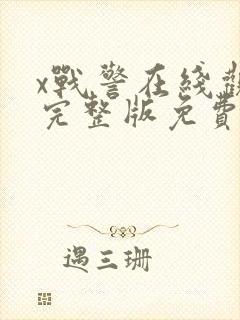 x戰警在綫觀
完整版免費
遇三珊